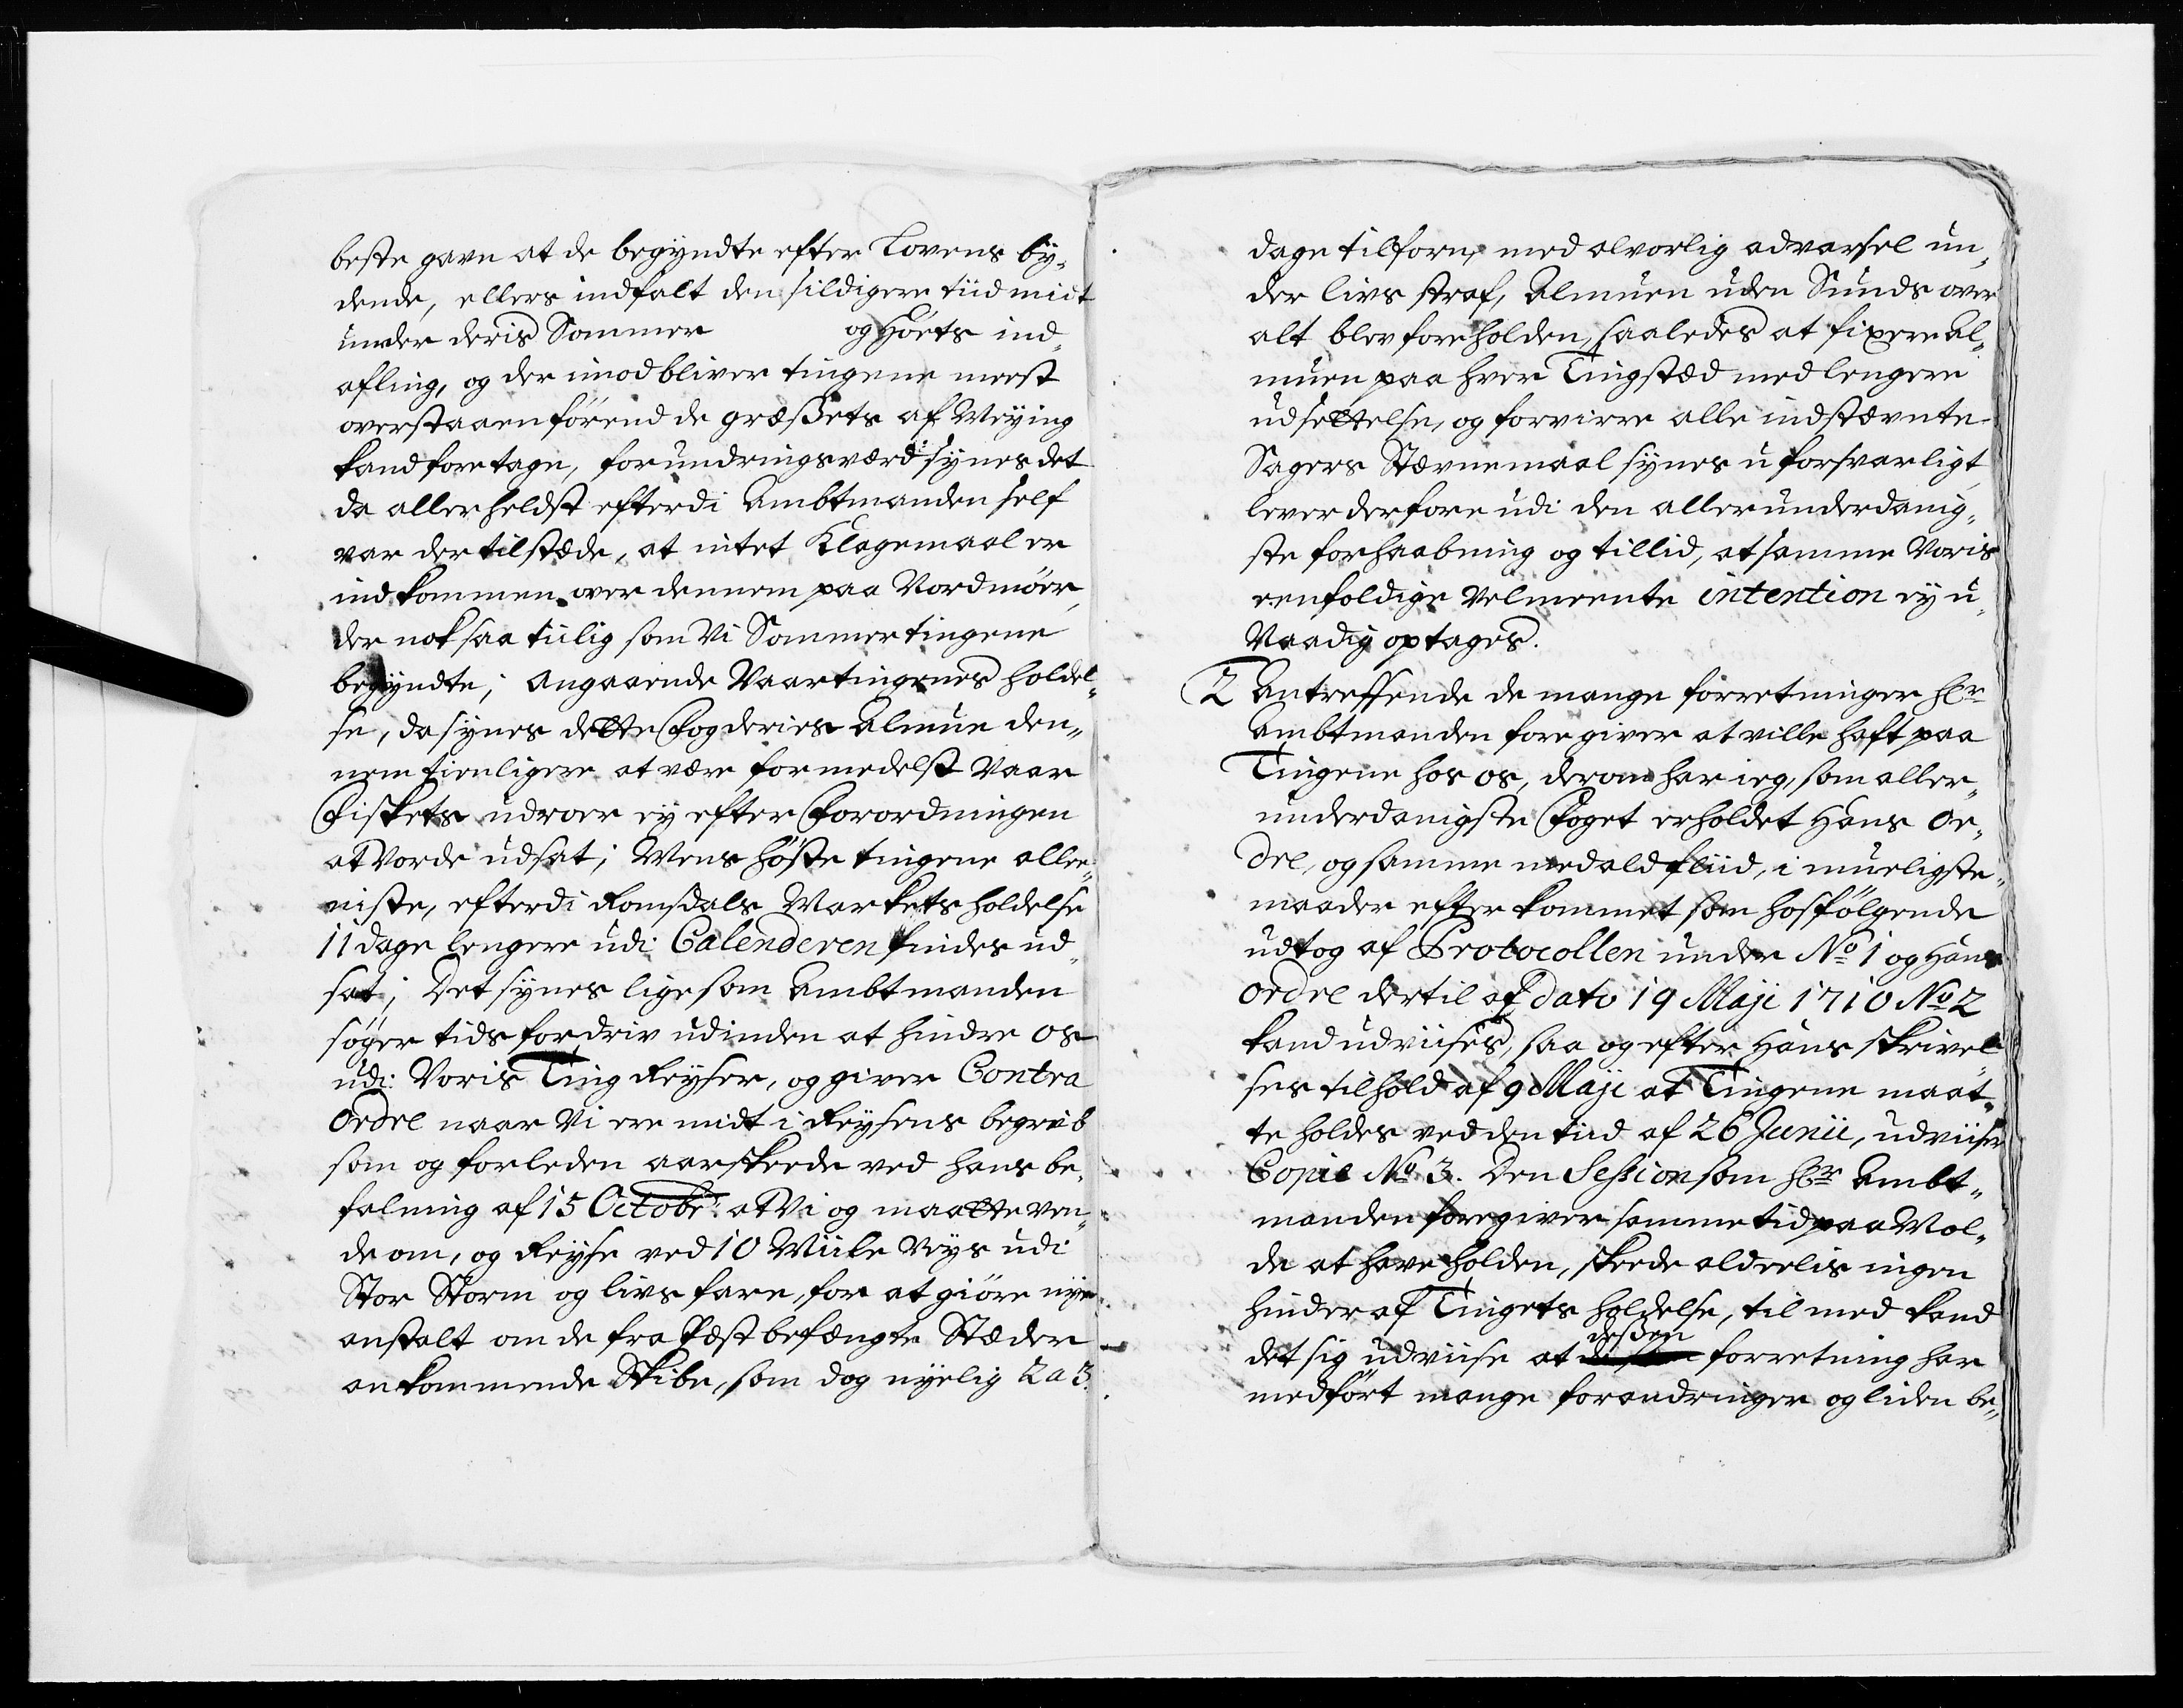 beste gavn at de begyndte efter Lovens by„
dende, ellers indfalt den sildigere tiid midt
under deris Sommer og Höets ind„
afling, og der imod bliver tingene meest
overstaaen förend de græssets af Meying
kand foretage, forundringsværd: synes det
da allerheldst efterdi Ambtmanden self
var der tilstæde, at intet Klagemaal er
indkommen over dennem paa Nordmöer,
der nok saa tiilig som Vi Sommertingene
begyndte; Angaaende Vaartingenes holdel„
se, da synes dette Fogderies Almue den„
nem tienligere at være formedelst Vaar
Fiskets udroer ey efter Forordningen
at Vorde udsat; Mens höste tingene aller„
niste, efterdi Romsdals Markets holdelse
11 dage lengere udi Calenderen findes ud„
sat; Det synes ligesom Ambtmanden
söger tids fordriv udinden at hindre os
udi Voris Ting Reyser, og giver Contra
Ordre naar Vi ere midt i Reysens begreb
som og forleden aar skeede ved hans be„
falning af 15 Octobr: at Vi og maatte ven„
de om, og Reyse ved 10 Miile Veys udi
Stor Storm og livs fare, for at giöre nye
anstalt om de fra Pæst befængte Stæder
ankommende Skibe, som dog nyelig 2 a 3
dage tilforn, med alvorlig advarsel un„
der livs straf, Almuen uden Sunds over
alt blev foreholden, saaledes at fixere Al„
muen paa hver Tingstæd med lengere
udsettelse, og forvirre alle indstævnte
Sagers Stævnemaal synes uforsvarligt,
lever derfore udi den allerunderdanig„
ste forhaabning og tillid, at samme Voris
eenfoldige Velmeente intention ey u„
Naadig optages.
2 Antreffende de mange forretninger Hr
Ambtmanden foregiver at ville haft paa
Tingene hos os, derom har ieg, som aller„
underdanigste Foget erholdet Hans Or„
dre, og samme med ald fliid, i mueligste„
maader efterkommet som hosfölgende
udtog af Protocollen under No 1 og Hans
ordre dertil af Dato 19 Maji 1710 No 2
kand udviises, saa og efter Hans skrivel„
ses tilhold af 9 Maji at Tingene maat„
te holdes ved den tiid af 26 Junii, udviiser
Copie No 3. Den Session som Hr Ambt„
manden foregiver samme tid paa Mol„
de at have holden, skeede aldeelis ingen
hinder af Tingets holdelse, til med kand
det sig udviise at dessen forretning har
medfört mange forandringer og liden be„